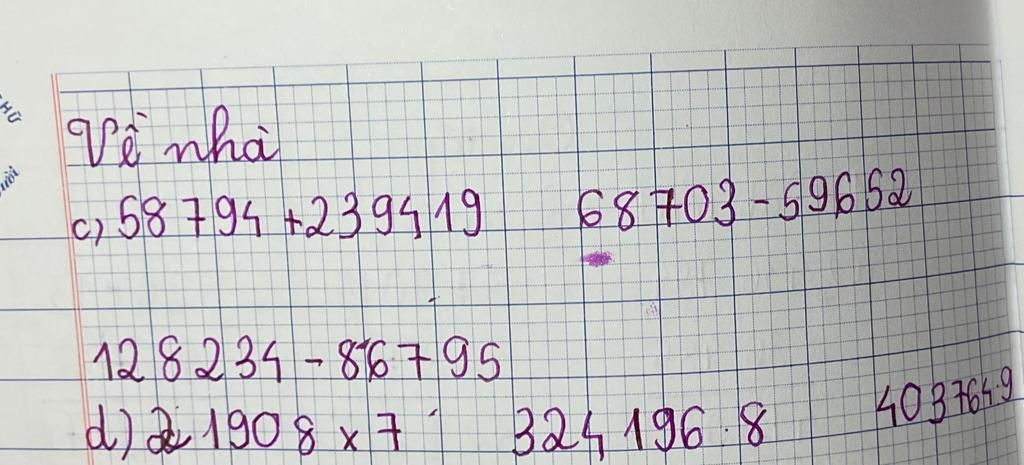 Về nhà
c) 58794 + 239419 68703 - 59652
128234 - 86795
d) 21908 x 7 324196 . 8 403764 . 9